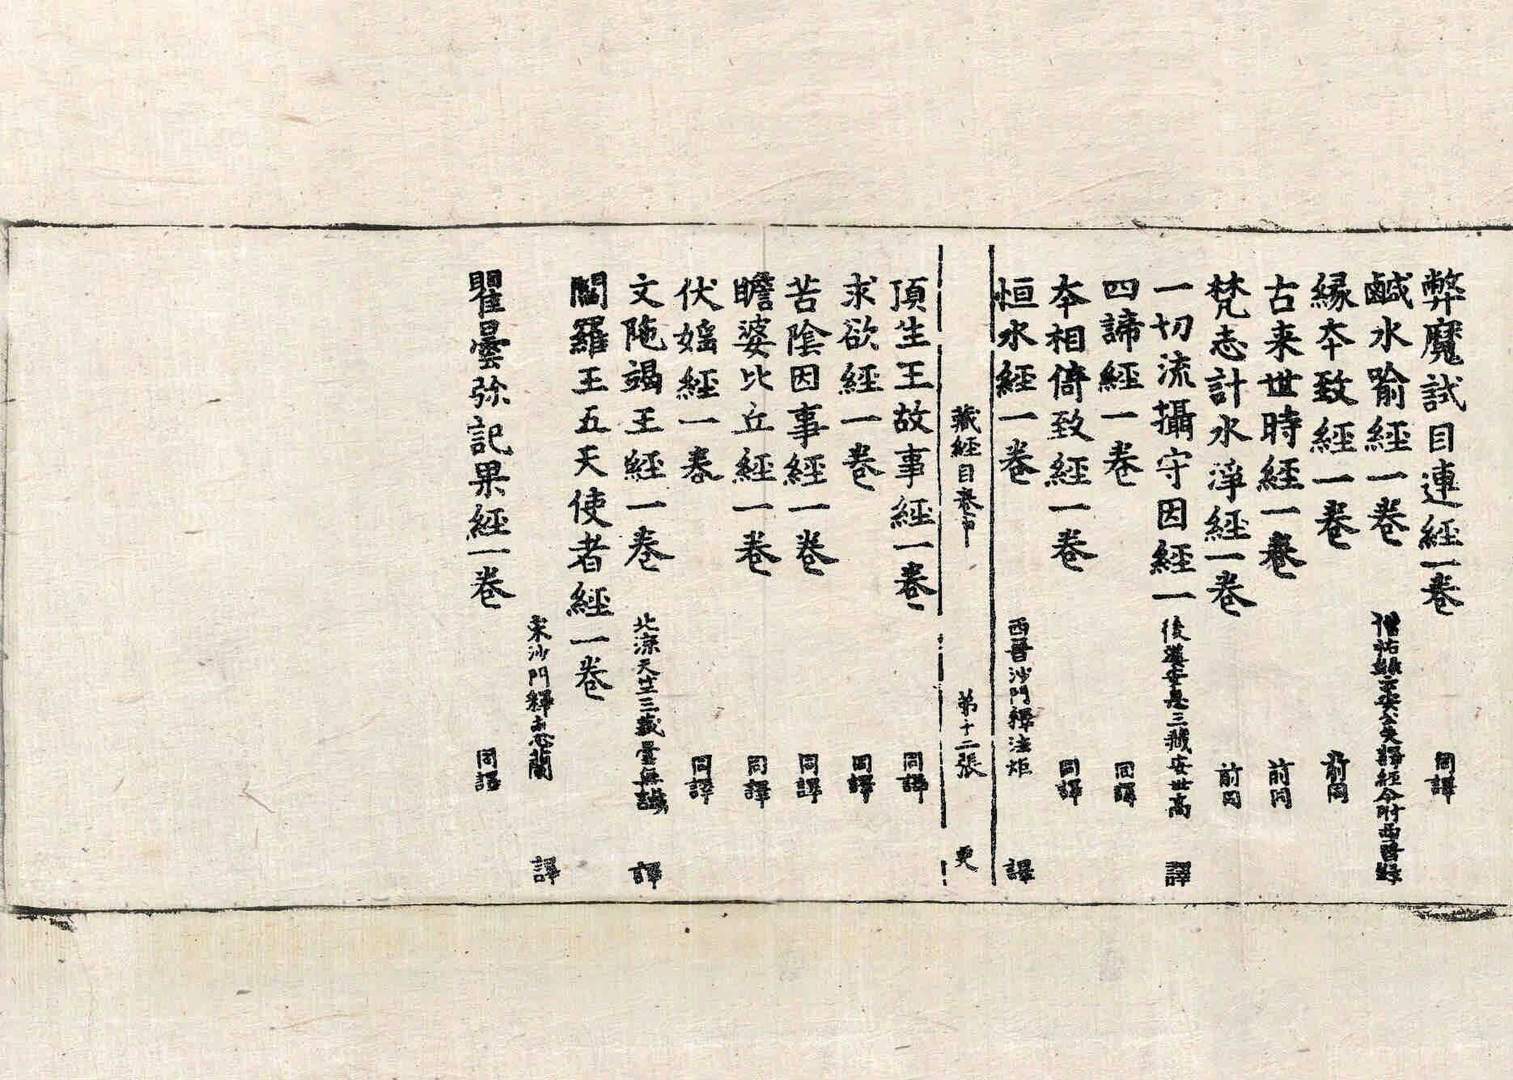 弊魔試目連經一卷 同譯
鹹水喻經一卷 僧祐錄云安公失譯經今附西晉錄
緣本致經一卷 前同
古来世時經一卷 前同
梵志計水淨經一卷 前同
一切流攝守因經一 後漢安息三藏安世高 譯
四諦經一卷 同譯
本相倚致經一卷 同譯
恒水經一卷 西晉沙門釋法炬 譯
藏經目卷中 第十二張 更
頂生王故事經一卷 同譯
求欲經一卷 同譯
苦陰因事經一卷 同譯
瞻婆比丘經一卷 同譯
伏婬經一卷 同譯
文陁竭王經一卷 北涼天竺三藏曇無讖 譯
閻羅王五天使者經一卷
宋沙門釋惠蘭 譯
瞿曇弥記果經一卷 同譯